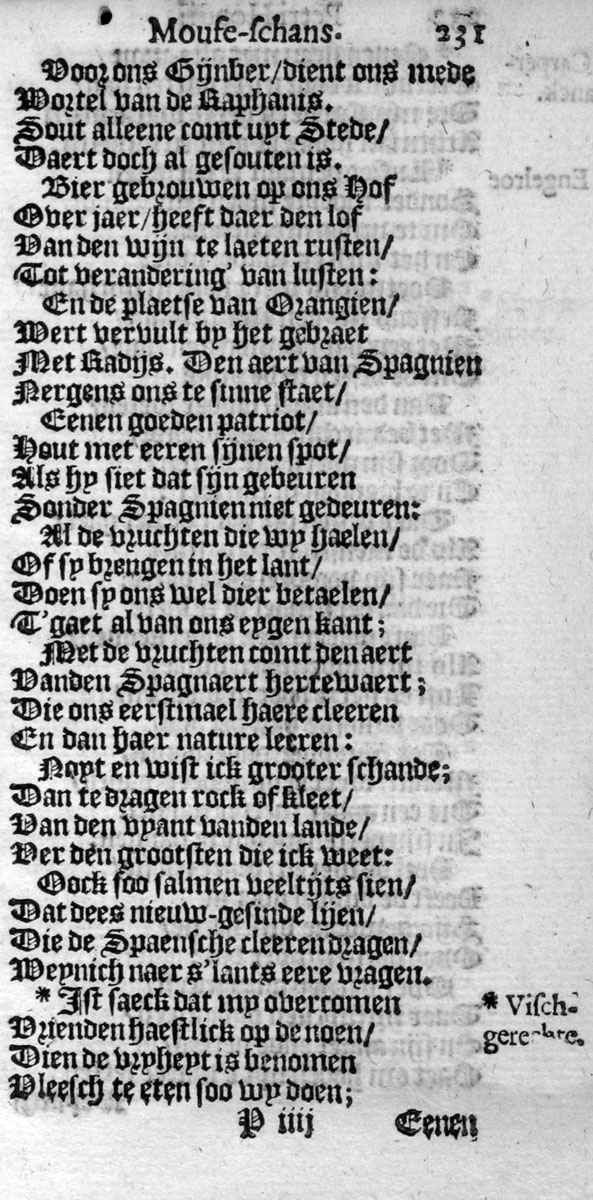 Moufe-ſchans. 231
Carper-
Voor ons Gijnber/dient ons mede
Wortel van de Raphanis.
Sout alleene comt uyt Stede/
Daert doch al gesouten is.
Engelroe
Bier gebrouwen op ons Hof
Over jaer/heeft daer den lof
Van den wijn te laeten rusten/
Tot verandering' van lusten:
En de plaetse van Orangien/
Wert vervult by het gebraet
Met Radijs. Den aert van Spagnien
Nergens ons te sinne staet/
Eenen goeden patriot/
Hout met eeren sijnen spot/
Als hy siet dat sijn gebeuren
Sonder Spagnien niet gedeuren:
Al de vruchten die wy haelen/
Of sy brengen in het lant/
Doen sy ons wel dier betaelen/
T'gaet al van ons eygen kant;
Met de vruchten comt den aert
Vanden Spagnaert hertewaert;
Die ons eerstmael haere cleeren
En dan haer nature leeren:
Noyt en wist ick grooter schande;
Dan te dragen rock of kleet/
Van den vyant vanden lande/
Ver den grootsten die ick weet:
Oock soo salmen veeltijts sien/
Dat dees nieuw-gesinde lijen/
Die de Spaensche cleeren dragen/
Weynich naer s'lants eere vragen.
* Ist saeck dat my overcomen
* Viſch-
Vrienden haestlick op de noen/
gerechte.
Dien de vryheyt is benomen
Vleesch te eten soo wy doen;
P iiij Eenen